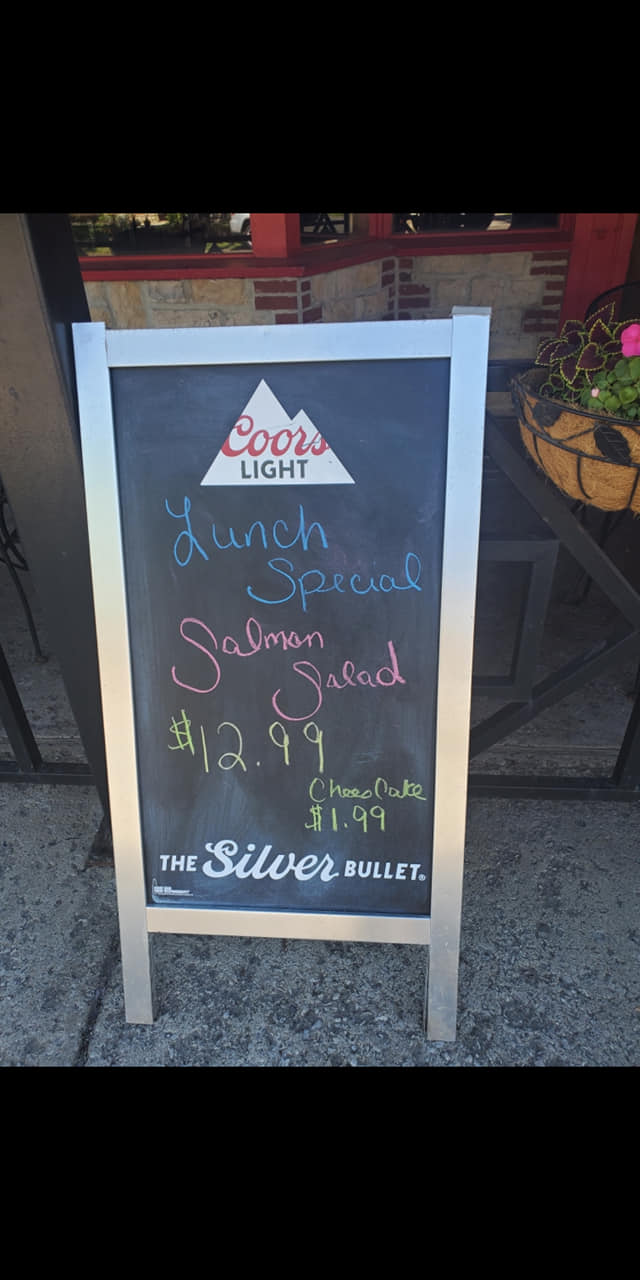 Coors
LIGHT
Lunch
Special
Salmon
Salad
$12.99
CheesCake
$1.99
THE Silver BULLET®